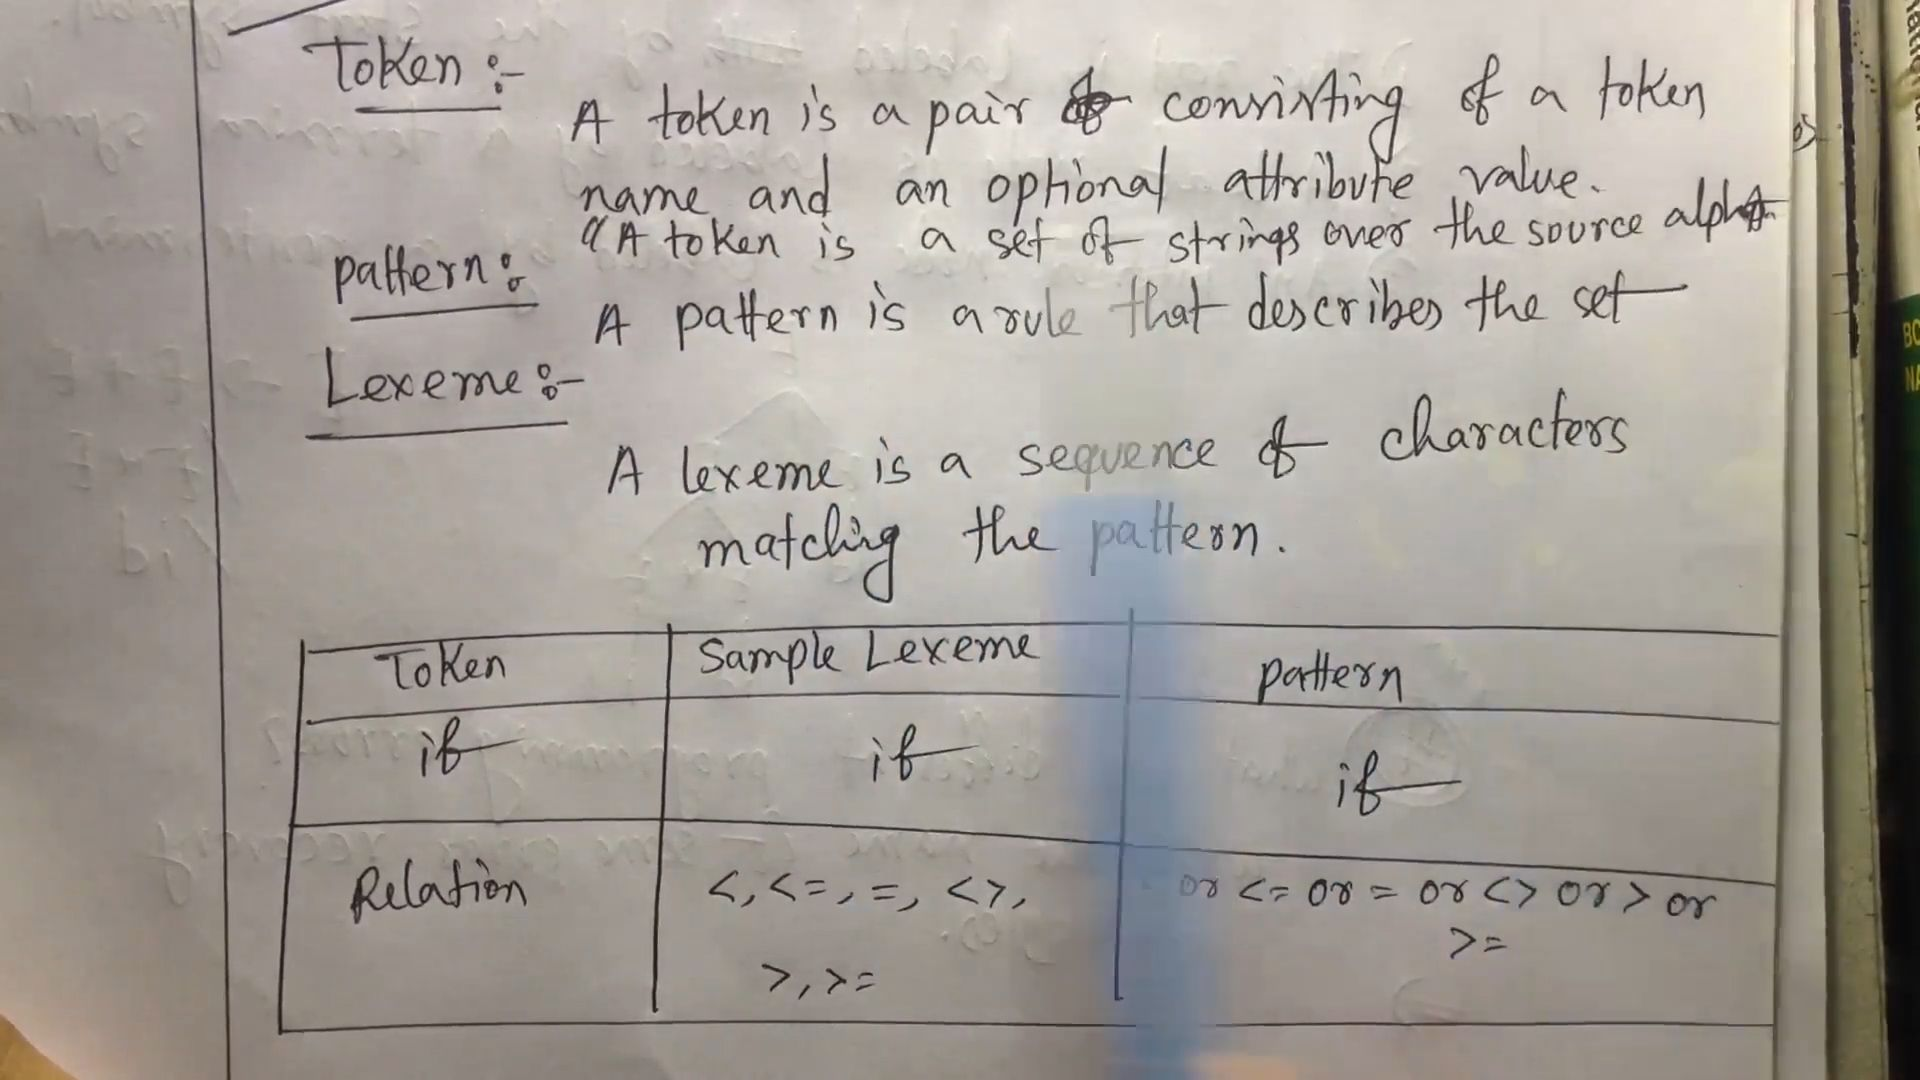 Token :-
A token is a pair consisting of a token
name and an optional attribute value.
"A token is a set of strings over the source alph
pattern :
A pattern is a rule that describes the set
Lexeme :-
A lexeme is a sequence of characters
matching the pattern.
Token Sample Lexeme pattern
if if if
Relation <, <=, =, <>, or <= or = or <> or > or
>, >= >=